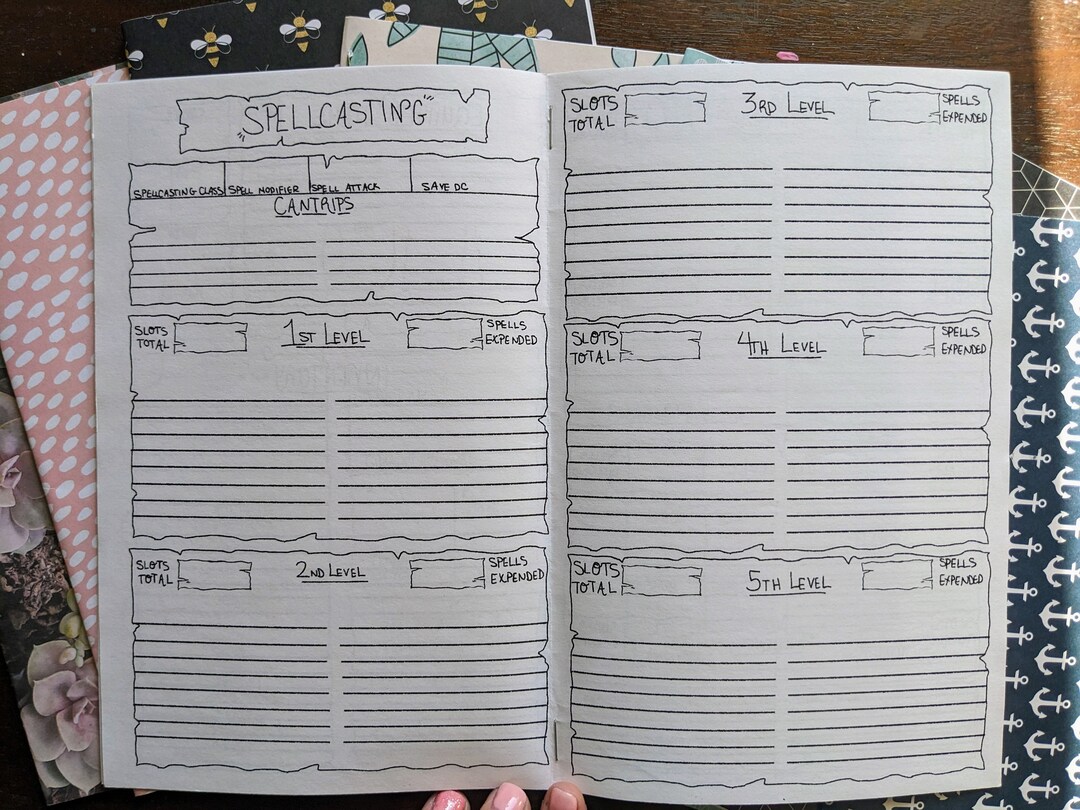 SPELLCASTING
SPELLCASTING CLASS SPELL MODIFIER SPELL ATTACK SAVE DC
CANTRIPS
SLOTS TOTAL 1ST LEVEL SPELLS EXPENDED
SLOTS TOTAL 2ND LEVEL SPELLS EXPENDED
SLOTS TOTAL 3RD LEVEL SPELLS EXPENDED
SLOTS TOTAL 4TH LEVEL SPELLS EXPENDED
SLOTS TOTAL 5TH LEVEL SPELLS EXPENDED